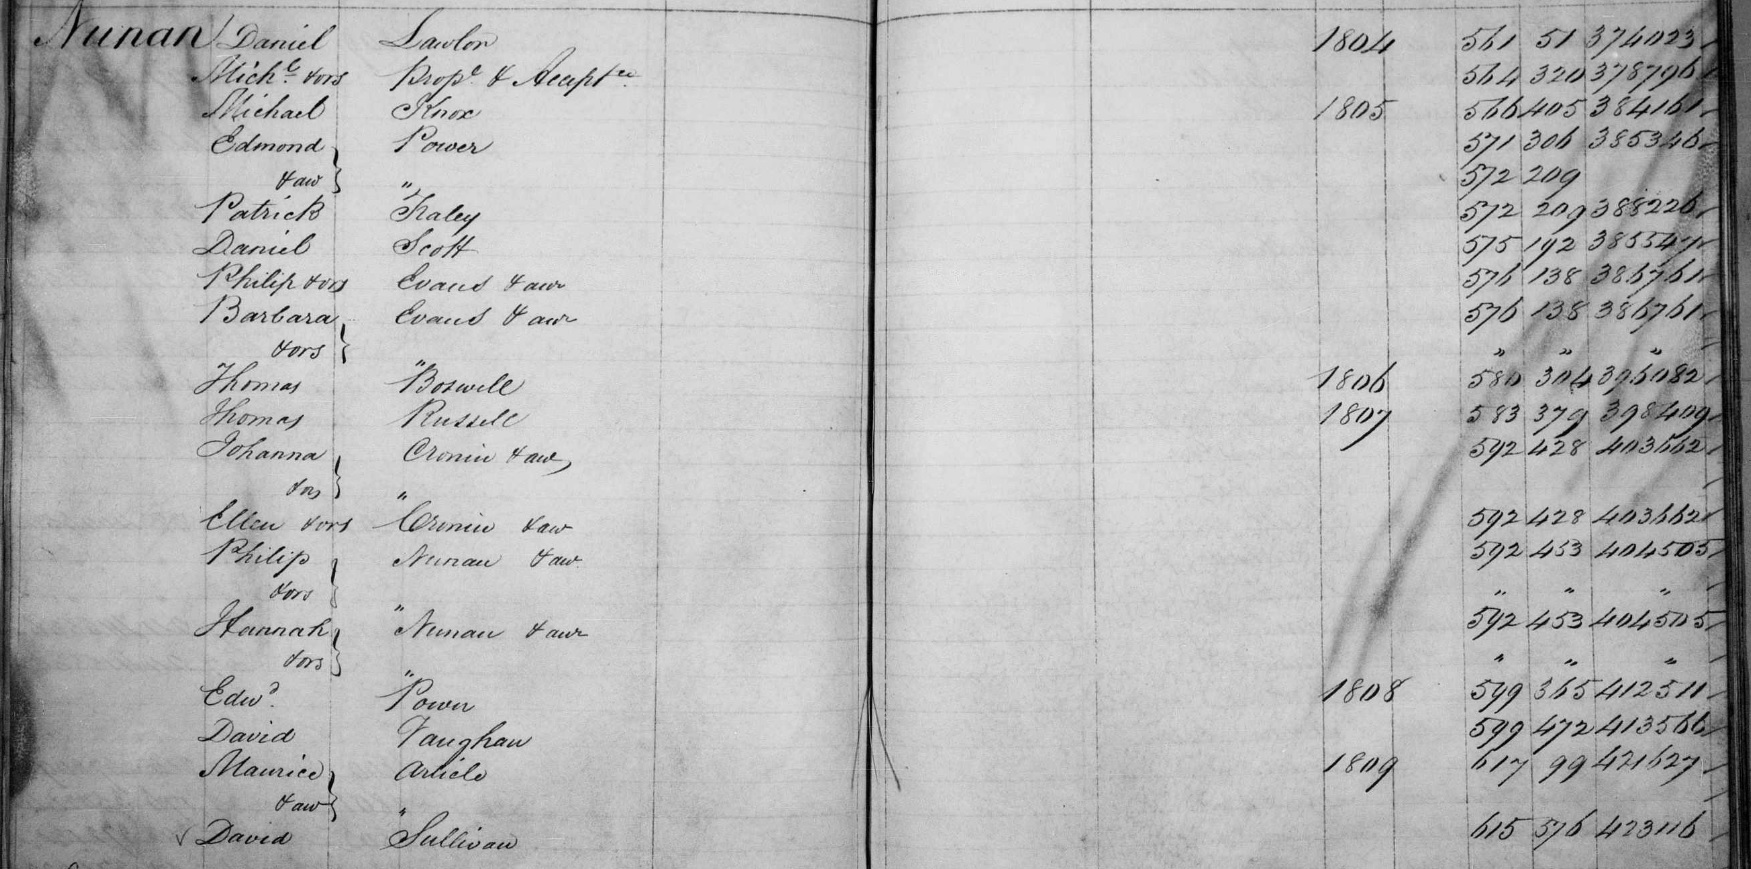 Nunan Daniel Lawlor 1804 561 51 374023
Mich.l &ors Prop.l & Accept.ce 564 320 378796
Michael Knox 1805 566 405 384161
Edmond } Power 571 306 385346
&anr } " 572 209
Patrick Haley 572 209 388226
Daniel Scott 575 192 385547
Philip &ors Evans &anr 576 138 386761
Barbara } Evans &anr 576 138 386761
&ors } " " " "
Thomas Boswell 1806 580 304 396082
Thomas Russell 1807 583 379 398409
Johanna } Cronin &anr 592 428 403662
&ors } "
Ellen &ors Cronin &anr 592 428 403662
Philip } Nunan &anr 592 453 404505
&ors } " " " "
Hannah } Nunan &anr 592 453 404505
&ors } " " " "
Edw.d Power 1808 599 365 412511
David Vaughan 599 472 413566
Maurice } Article 1809 617 99 421627
&anr } "
David Sullivan 615 576 423116